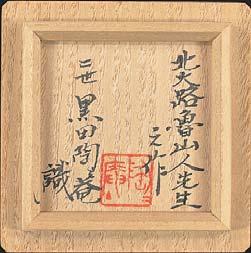 北大路魯山人先生
之作
二世 黒田陶菴
識